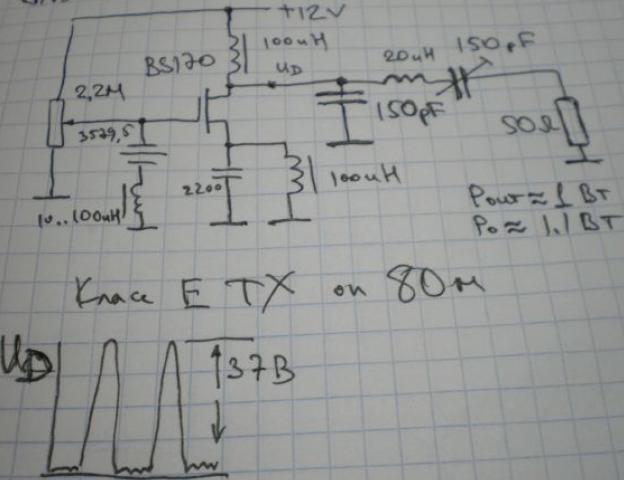 +12V
100uH
BS170
UD
20uH
150pF
2,2M
3579,5
150pF
50Ω
2200
100uH
10..100uH
Pout ≈ 1 Вт
Po ≈ 1.1 Вт
Класс E TX on 80м
UD
37В